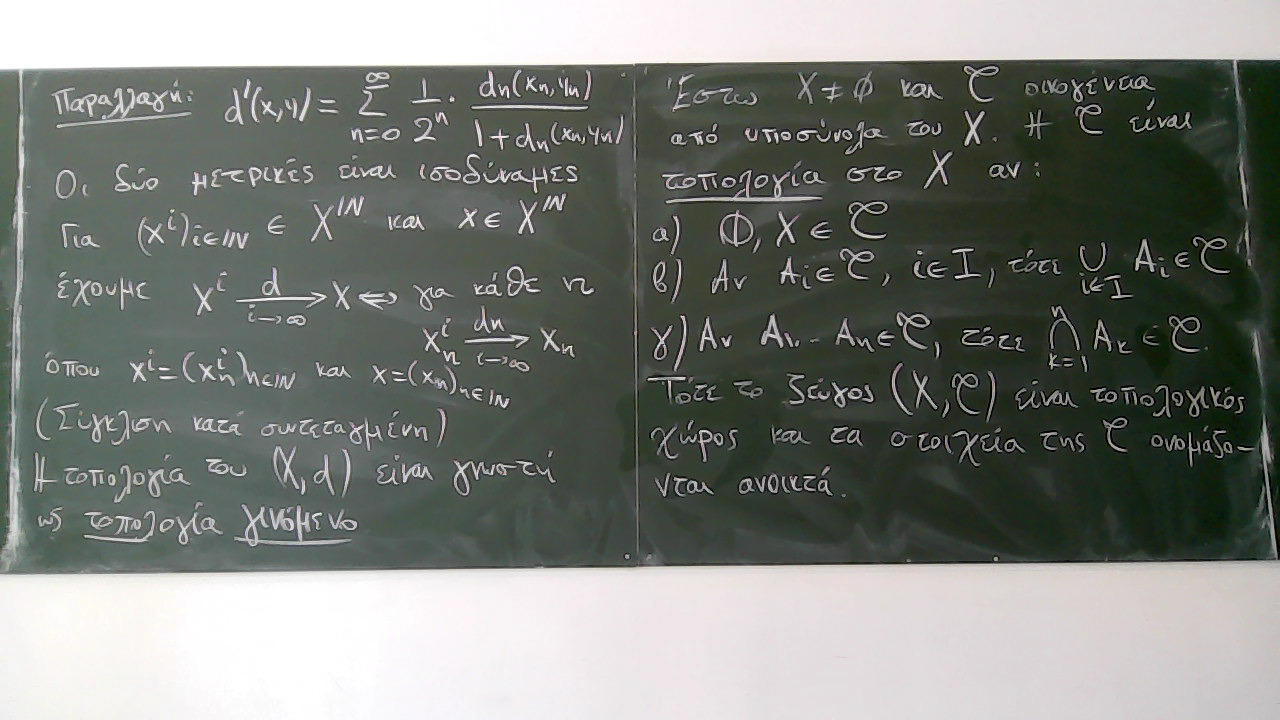 Παραλλαγή: d'(x,y) = ∞∑n=0 1/2ⁿ · dn(xn,yn)/1+dn(xn,yn)
Οι δύο μετρικές είναι ισοδύναμες
Για (xⁱ)i∈ℕ ∈ Xᴺ και x∈Xᴺ
έχουμε xⁱ d→i→∞ x ⟺ για κάθε n
xⁱn dn→i→∞ xn
όπου xⁱ=(xⁱn)n∈ℕ και x=(xn)n∈ℕ
(Σύγκλιση κατά συντεταγμένη)
Η τοπολογία του (X,d) είναι γνωστή
ως τοπολογία γινόμενο
Έστω X≠∅ και 𝒯 οικογένεια
από υποσύνολα του X. Η 𝒯 είναι
τοπολογία στο X αν:
α) ∅, X ∈ 𝒯
β) Αν Ai∈𝒯, i∈I, τότε ∪i∈I Ai∈𝒯
γ) Αν A1.. An∈𝒯, τότε n⋂k=1 Ak∈𝒯.
Τότε το ζεύγος (X,𝒯) είναι τοπολογικός
χώρος και τα στοιχεία της 𝒯 ονομάζο-
νται ανοικτά.